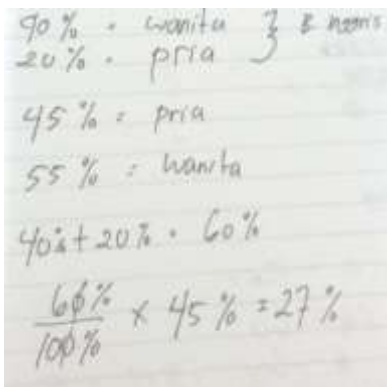 40% = wanita } B inggris
20% = pria
45% = pria
55% = wanita
40% + 20% = 60%
60% / 100% x 45% = 27%